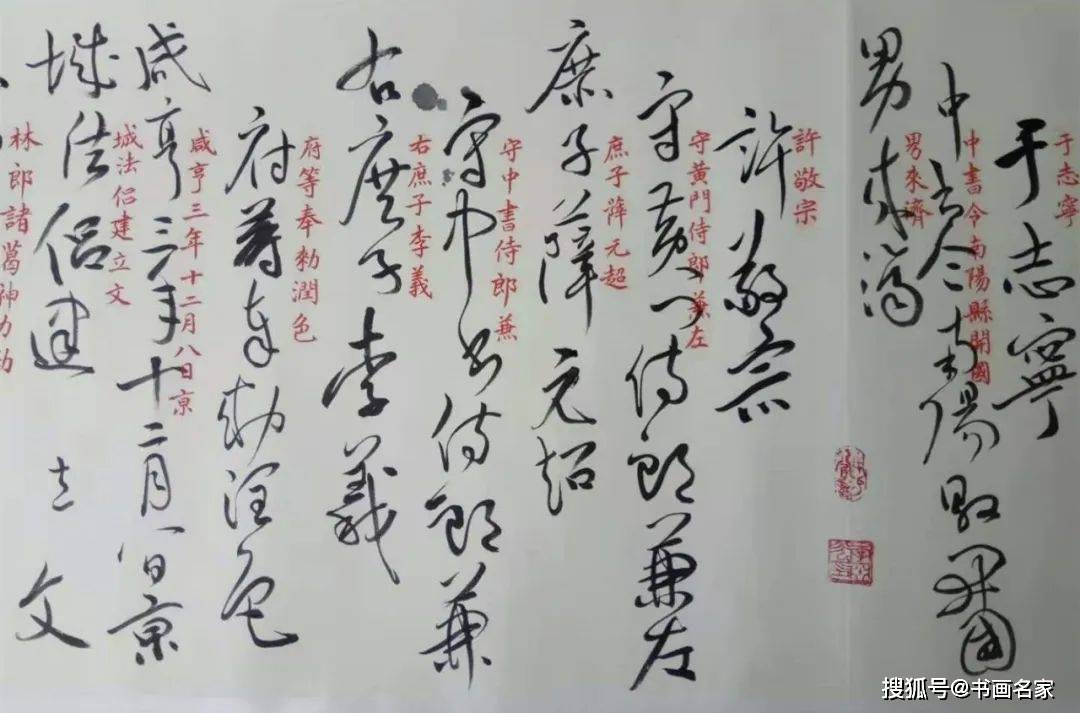 于志寧
于志寧
中書令南陽縣開國
中書令南陽縣開國
男來濟
男來濟
許敬宗
許敬宗
守黃門侍郎兼左
守黃門侍郎兼左
庶子薛元超
庶子薛元超
守中書侍郎兼
守中書侍郎兼
右庶子李義
右庶子李義
府等奉勑潤色
府等奉勑潤色
咸亨三年十二月八日京
咸亨三年十二月八日京
城法侶建立文
城法侶建立文
林郎諸葛神力勒
搜狐号@书画名家